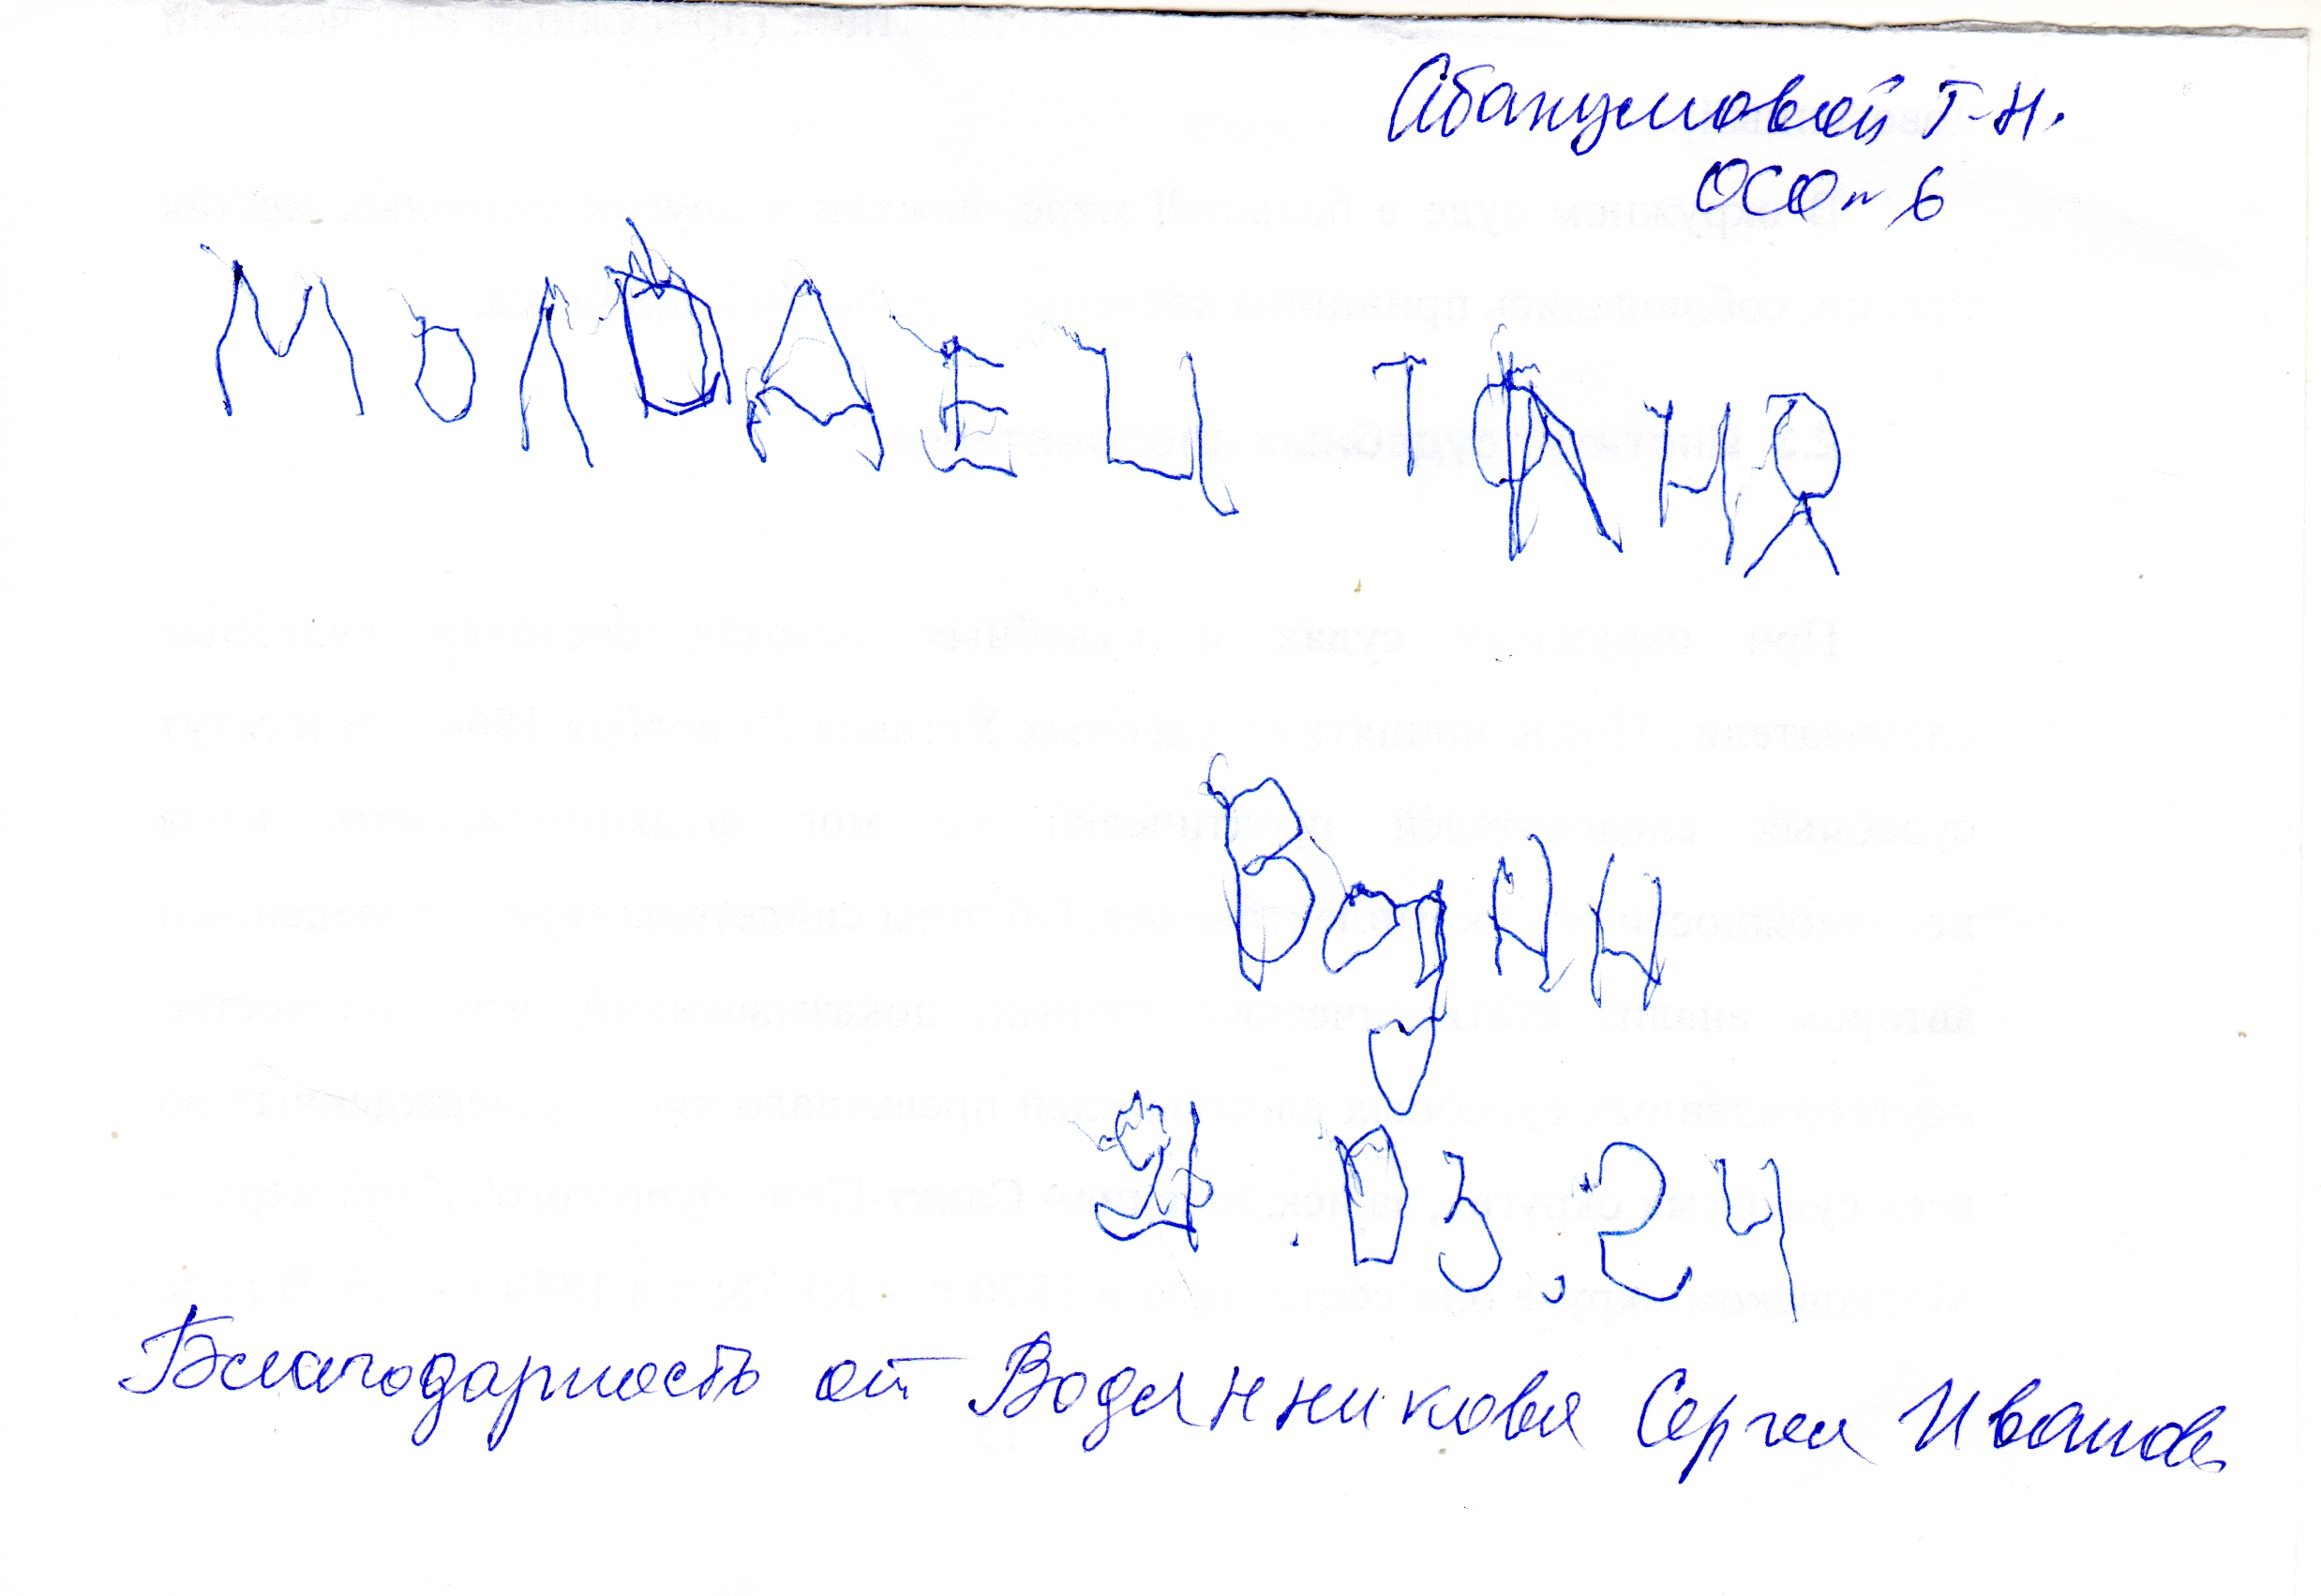 Абакумовой Т.Н.
ОСО № 6
МОЛОДЕЦ ТАНЯ
ВодЯН
.03.24
Благодарность от Водянникова Сергея Иванов